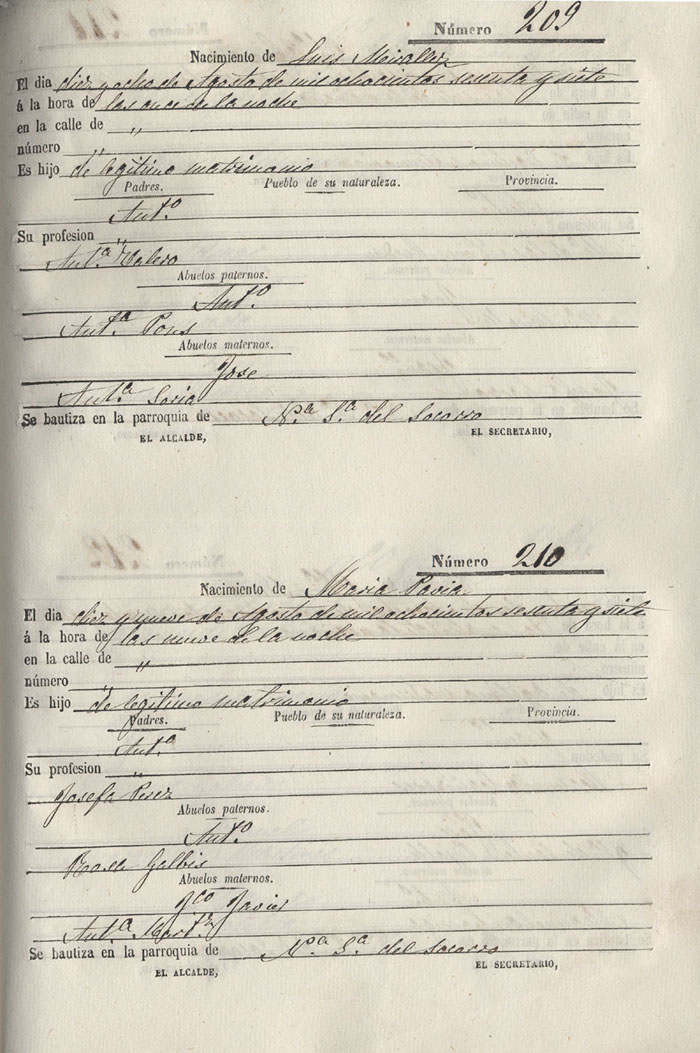 Número 209
Nacimiento de Luis Miralles
El dia diez y ocho de Agosto de mil ochocientos sesenta y siete
á la hora de las once de la noche
en la calle de "
número "
Es hijo de legitimo matrimonio
Padres. Pueblo de su naturaleza. Provincia.
Antº
Su profesion "
Antª Valero
Abuelos paternos.
Antº
Antª Pons
Abuelos maternos.
Jose
Antª Soria
Se bautiza en la parroquia de Nª Sª del Socorro
EL ALCALDE, EL SECRETARIO,
Número 210
Nacimiento de Maria Pavia
El dia diez y nueve de Agosto de mil ochocientos sesenta y siete
á la hora de las nueve de la noche
en la calle de "
número "
Es hijo de legitimo matrimonio
Padres. Pueblo de su naturaleza. Provincia.
Su profesion "
Josefa Perez
Abuelos paternos.
Antº
Rosa Galbis
Abuelos maternos.
Javier
Antª Martz
Se bautiza en la parroquia de Nª Sª del Socorro
EL ALCALDE, EL SECRETARIO,